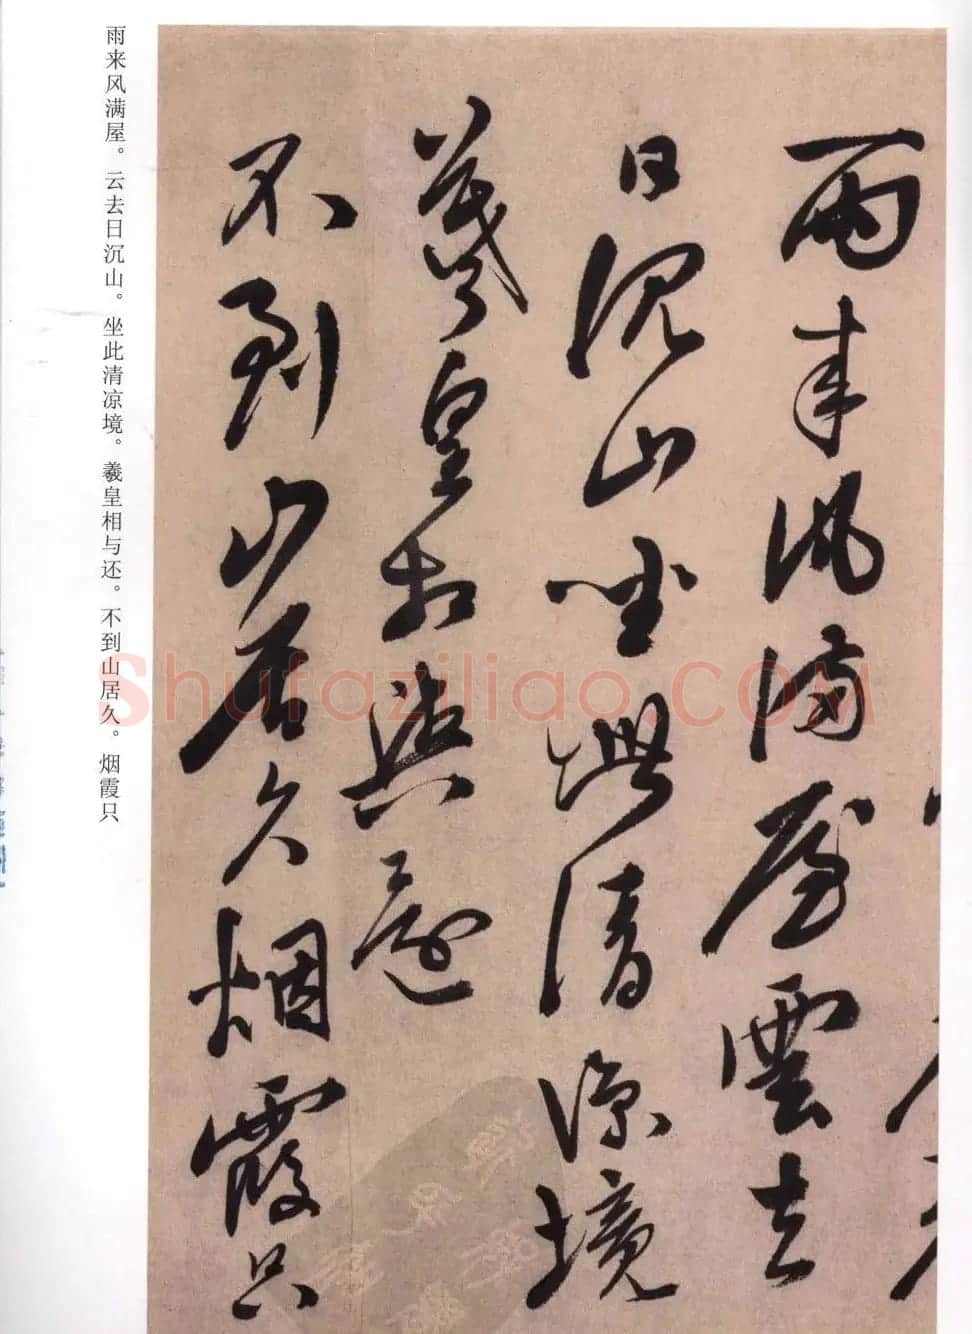 雨来風滿屋雲去
日沉山坐此清涼境
羲皇相與還
不到山居久烟霞只
雨来风满屋。云去日沉山。坐此清凉境。羲皇相与还。不到山居久。烟霞只
Shufaziliao.COM